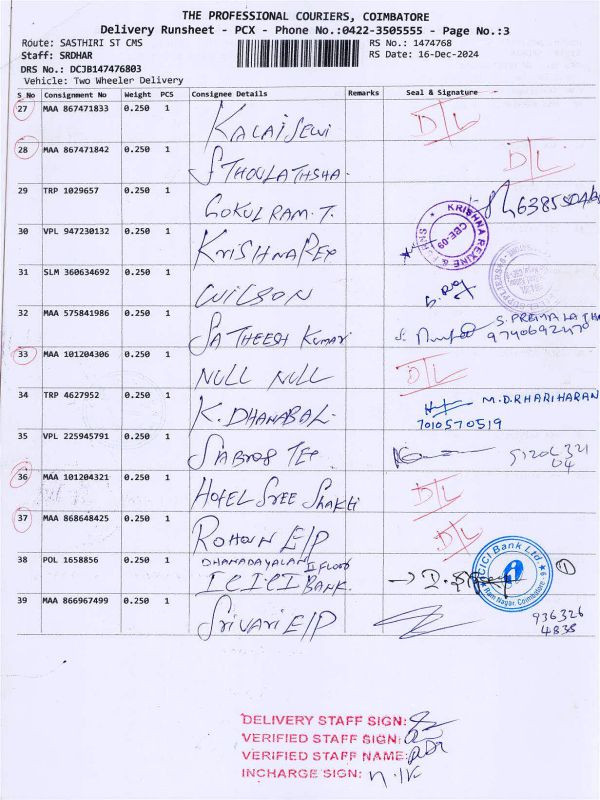 THE PROFESSIONAL COURIERS, COIMBATORE
Delivery Runsheet - PCX - Phone No.:0422-3505555 - Page No.:3
Route: SASTHIRI ST CMS RS No.: 1474768
Staff: SRDHAR RS Date: 16-Dec-2024
DRS No.: DCJB147476803
Vehicle: Two Wheeler Delivery
S No Consignment No Weight PCS Consignee Details Remarks Seal & Signature
27 MAA 867471833 0.250 1 KALAISELVI D/L
28 MAA 867471842 0.250 1 STHOULATHSHA. D/L
29 TRP 1029657 0.250 1 GOKULRAM.T.
30 VPL 947230132 0.250 1 KRISHNAREX KRISHNA REXINE & CBE-09
31 SLM 360634692 0.250 1 WILSON
32 MAA 575841986 0.250 1 SATHEESH KUMAR S. PREMALATHA
9740692470
33 MAA 101204306 0.250 1 NULL NULL D/L
34 TRP 4627952 0.250 1 K. DHANABAL. M.D.RHARIHARAN
7010570519
35 VPL 225945791 0.250 1 SABROS TEX
36 MAA 101204321 0.250 1 HOTEL SREE SHAKTI D/L
37 MAA 868648425 0.250 1 E/P D/L
38 POL 1658856 0.250 1 DHANADAYALAN II FLOOR
ICICI BANK. ICICI Bank Ltd. Ram Nagar, Coimbatore-9 1
39 MAA 866967499 0.250 1 SRIVARI E/P 936326
4838
DELIVERY STAFF SIGN:
VERIFIED STAFF SIGN:
VERIFIED STAFF NAME:
INCHARGE SIGN: